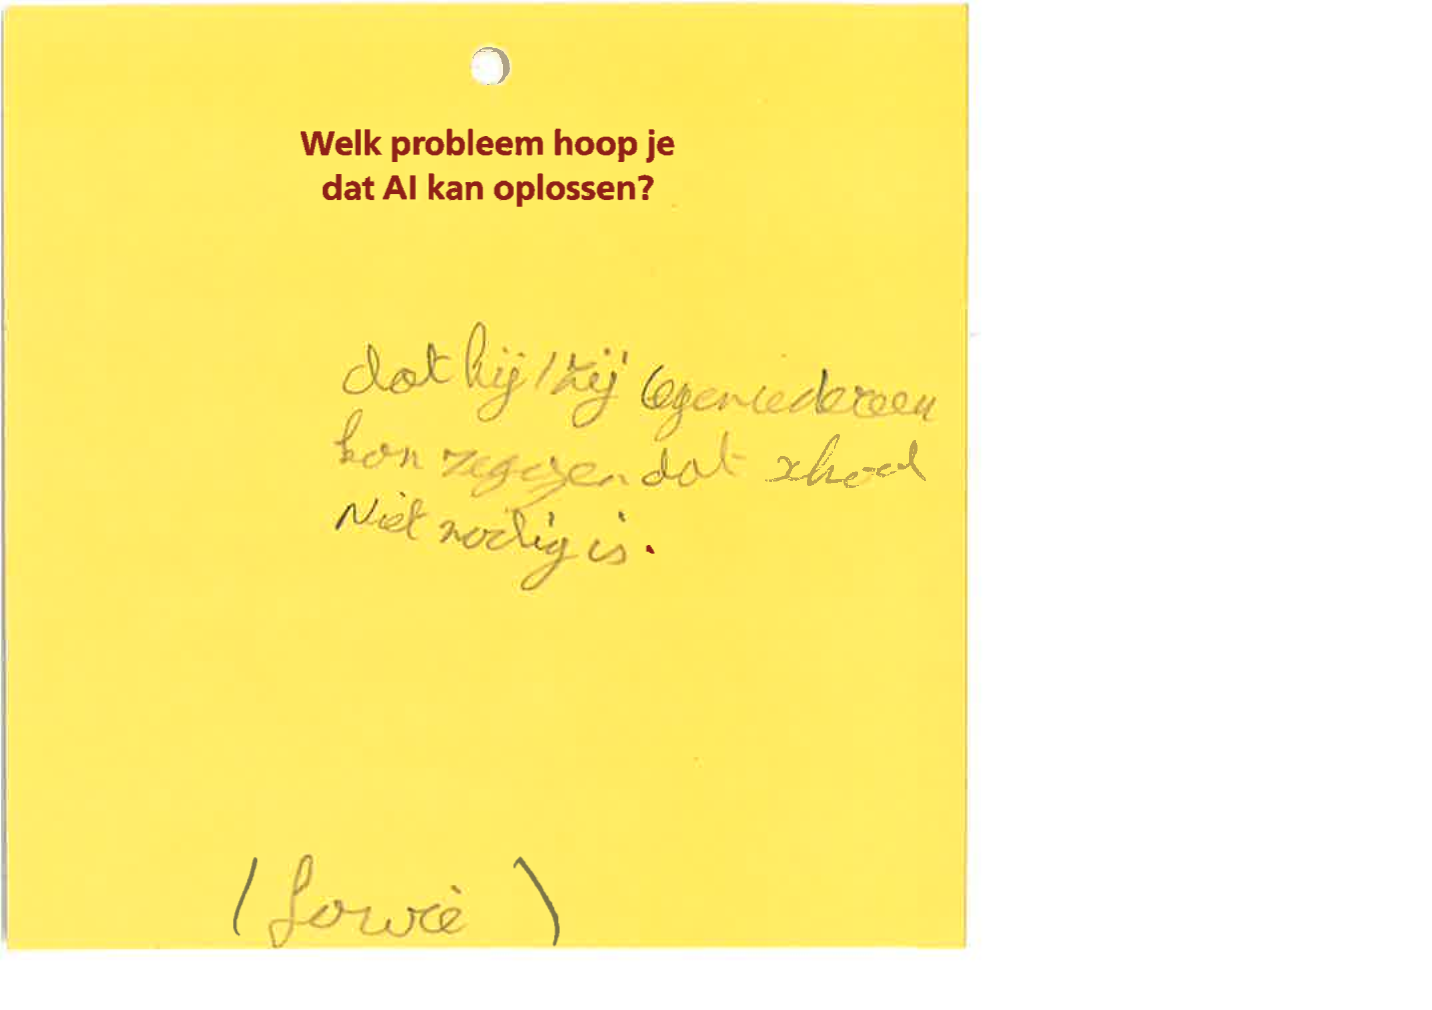 Welk probleem hoop je
dat AI kan oplossen?
dat hij/zij tegen iedereen
kon zeggen dat school
Niet nodig is.
(Lowie)